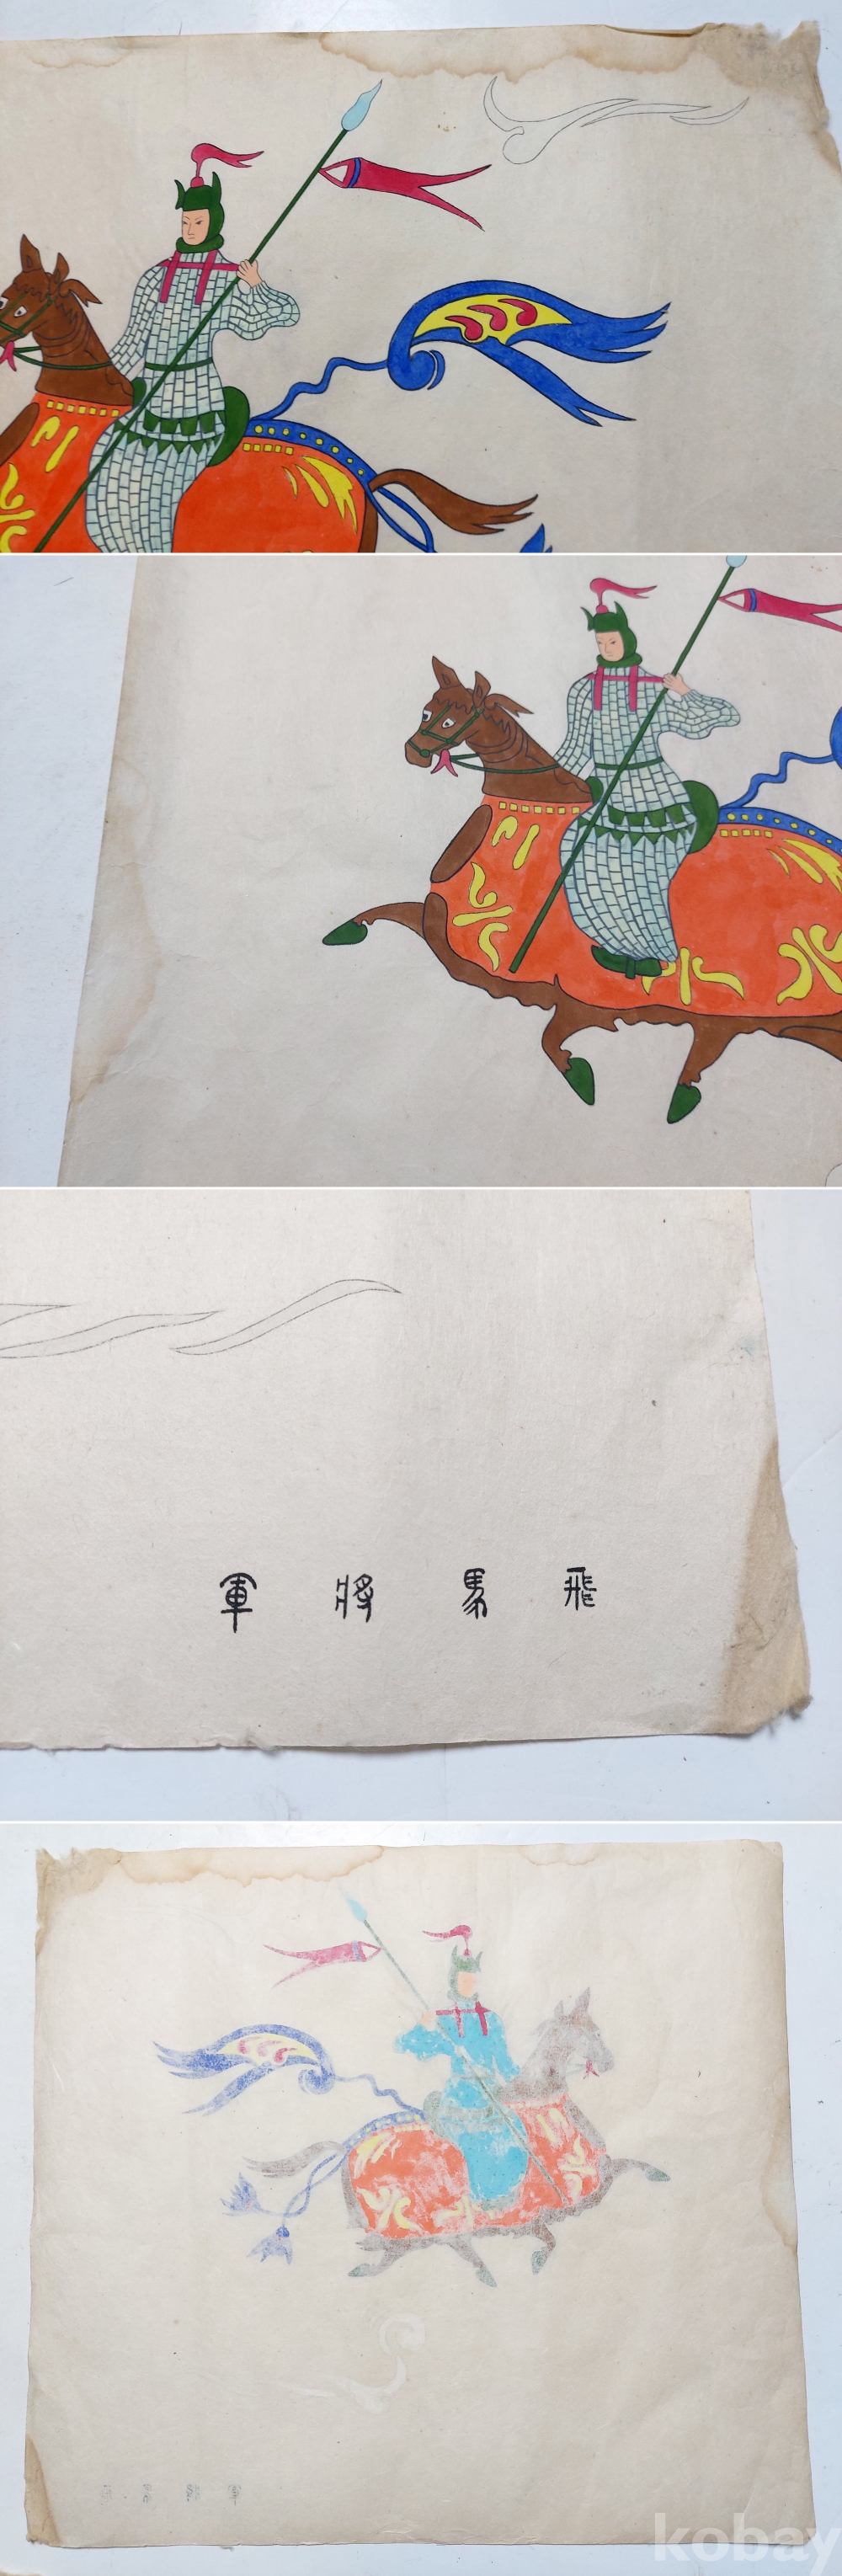 飛馬將軍
kobay